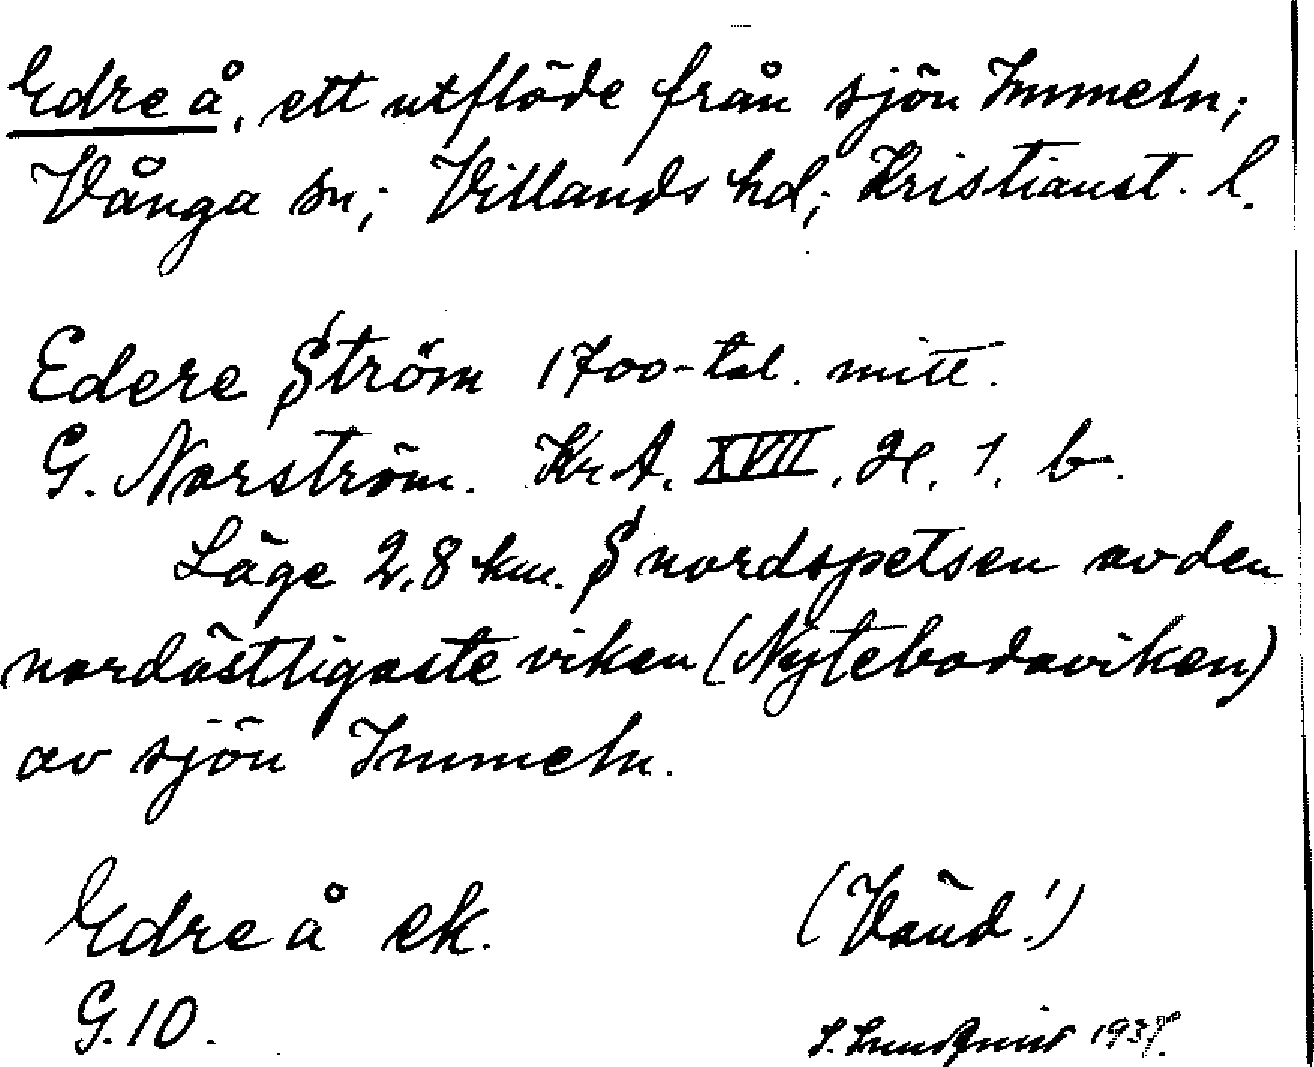 Edre å, ett utflöde från sjön Immeln;
Vånga sn; Villands hd; Kristianst. l.
Edere Ström 1700-tal. mitt.
G. Norström. KrA. XVII, H. 1. b.
Läge 2,8 km. S nordspetsen av den
nordöstligaste viken (Nytebodaviken)
av sjön Immeln.
Edre å ek.
(Vänd!)
G. 10.
S. Lundqvist